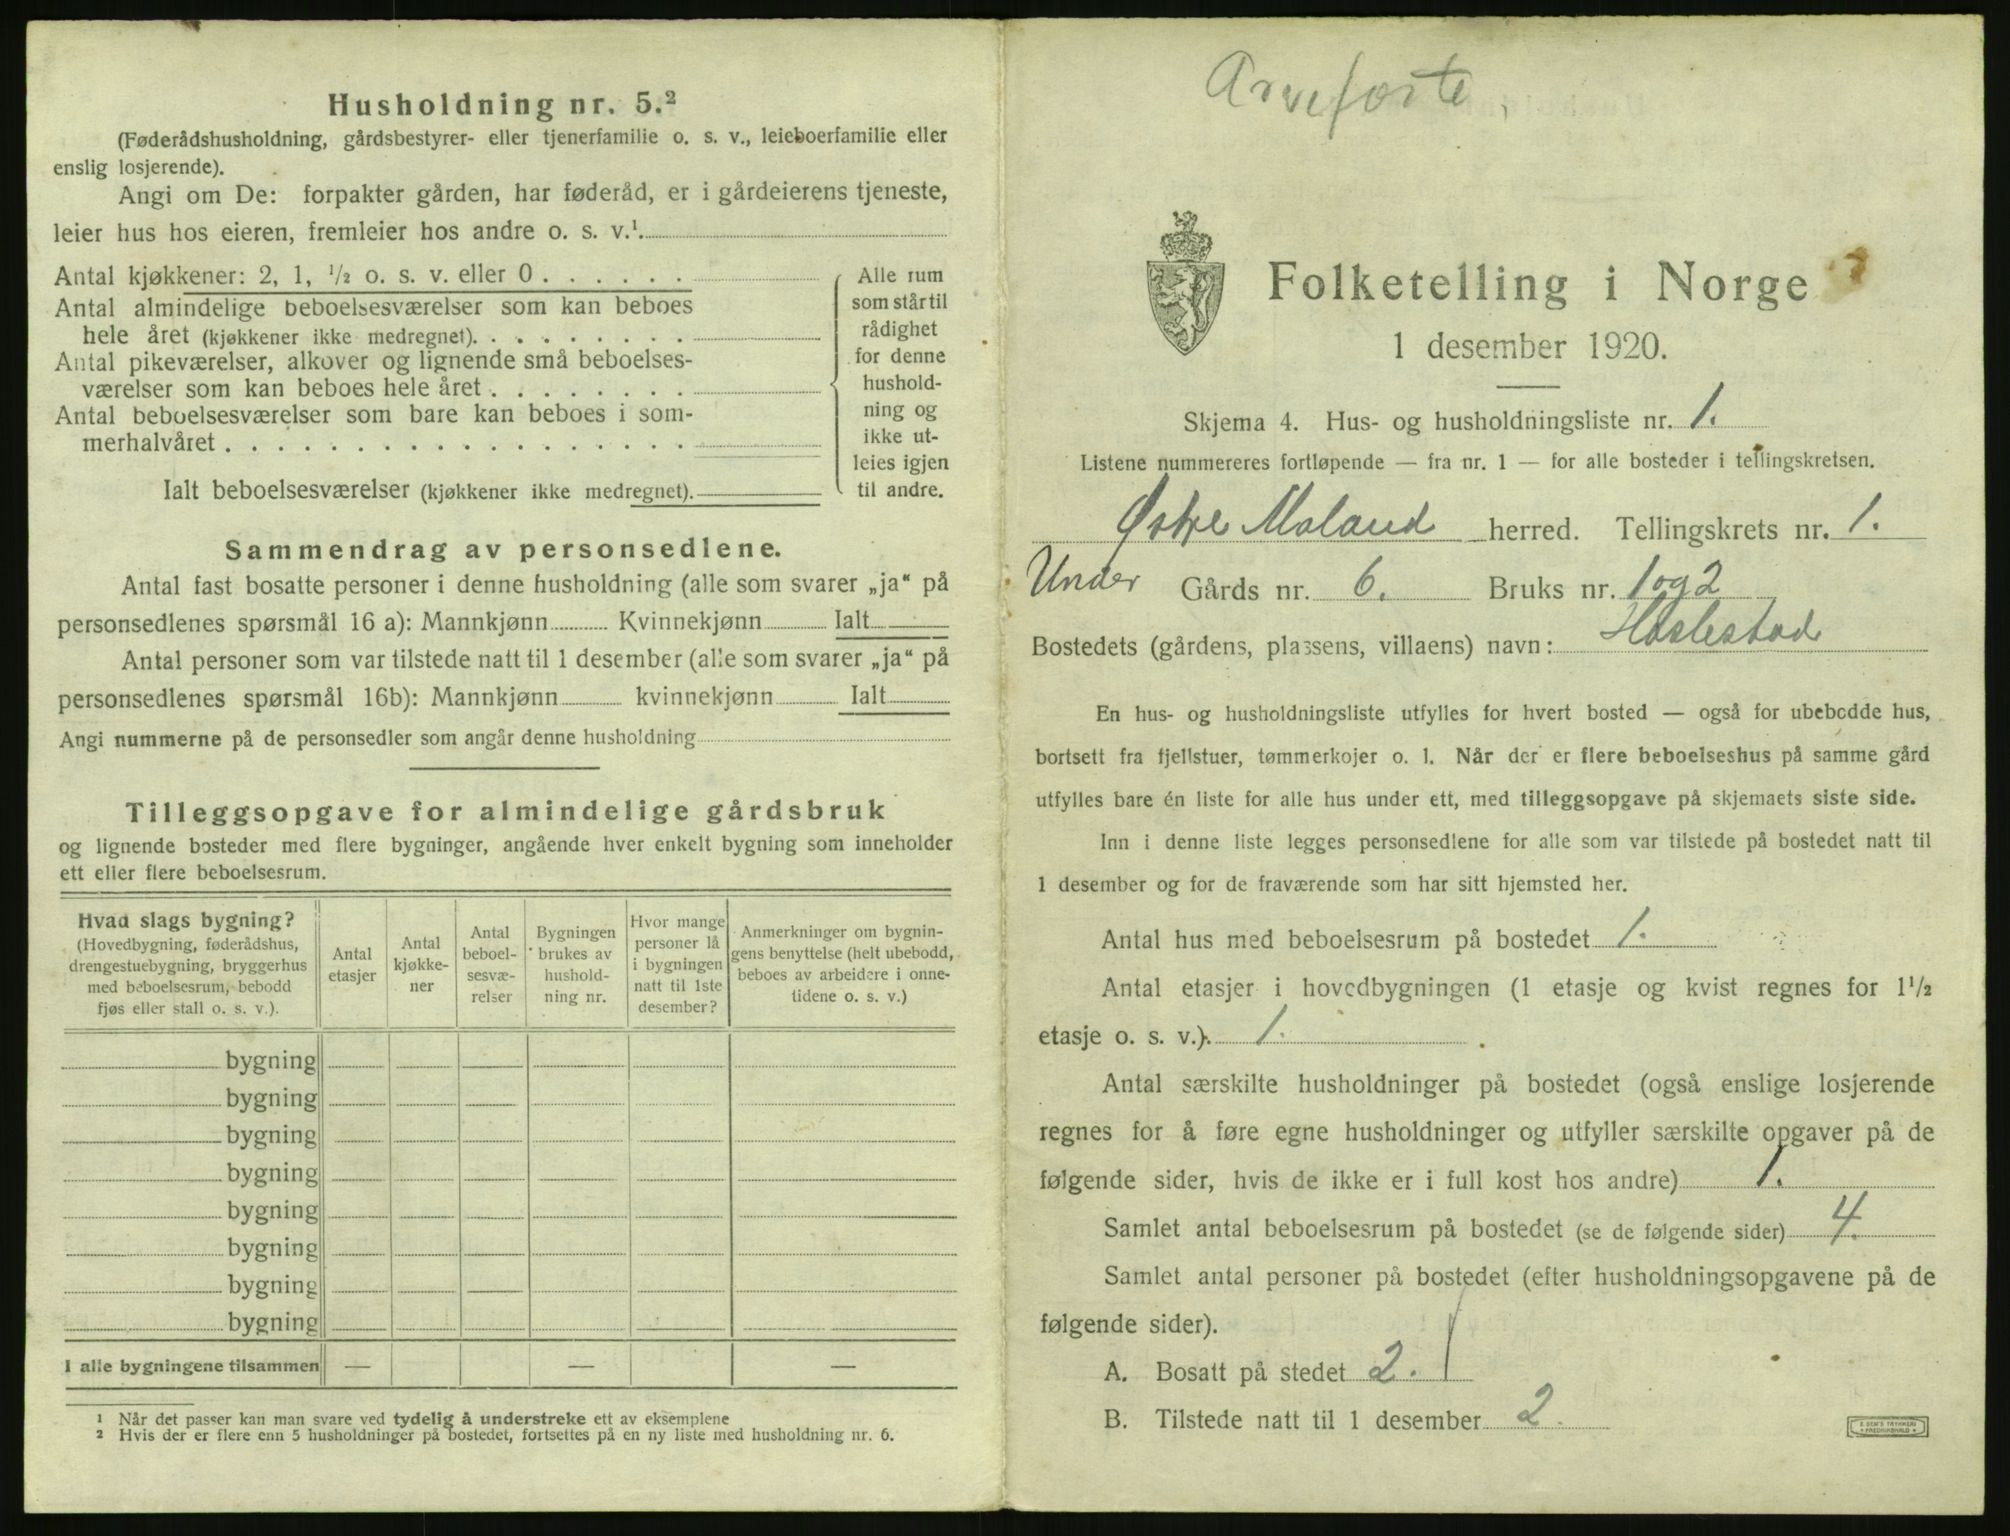 Husholdning nr. 5.²
(Føderådshusholdning, gårdsbestyrer- eller tjenerfamilie o. s. v., leieboerfamilie eller
enslig losjerende).
Angi om De: forpakter gården, har føderåd, er i gårdeierens tjeneste,
leier hus hos eieren, fremleier hos andre o. s. v.¹.
Antal kjøkkener: 2, 1, ½ o. s. v. eller 0 . . . . . .
Antal almindelige beboelsesværelser som kan beboes
hele året (kjøkkener ikke medregnet). . . . . . . . .
Antal pikeværelser, alkover og lignende små beboelses-
værelser som kan beboes hele året . . . . . . . .
Antal beboelsesværelser som bare kan beboes i som-
merhalvåret . . . . . . . . . . . . . . . . . .
Ialt beboelsesværelser (kjøkkener ikke medregnet).
Alle rum
som står til
rådighet
for denne
hushold-
ning og
ikke ut-
leies igjen
til andre.
Sammendrag av personsedlene.
Antal fast bosatte personer i denne husholdning (alle som svarer „ja“ på
personsedlenes spørsmål 16 a): Mannkjønn Kvinnekjønn Ialt
Antal personer som var tilstede natt til 1 desember (alle som svarer „ja“ på
personsedlenes spørsmål 16b): Mannkjønn kvinnekjønn Ialt
Angi nummerne på de personsedler som angår denne husholdning
Tilleggsopgave for almindelige gårdsbruk
og lignende bosteder med flere bygninger, angående hver enkelt bygning som inneholder
ett eller flere beboelsesrum.
Hvad slags bygning?
(Hovedbygning, føderådshus,
drengestuebygning, bryggerhus
med beboelsesrum, bebodd
fjøs eller stall o. s. v.).
Antal
etasjer
Antal
kjøkke-
ner
Antal
beboel-
sesvæ-
relser
Bygningen
brukes av
hushold-
ning nr.
Hvor mange
personer lå
i bygningen
natt til 1ste
desember?
Anmerkninger om bygnin-
gens benyttelse (helt ubebodd,
beboes av arbeidere i onne-
tidene o. s. v.)
bygning
bygning
bygning
bygning
bygning
bygning
bygning
bygning
I alle bygningene tilsammen — — —
¹ Når det passer kan man svare ved tydelig å understreke ett av eksemplene
² Hvis der er flere enn 5 husholdninger på bostedet, fortsettes på en ny liste med husholdning nr. 6.
Folketelling i Norge
1 desember 1920.
Skjema 4. Hus- og husholdningsliste nr. 1.
Listene nummereres fortløpende — fra nr. 1 — for alle bosteder i tellingskretsen.
Østre Moland herred. Tellingskrets nr. 1.
Under Gårds nr. 6. Bruks nr. 1 og 2
Bostedets (gårdens, plassens, villaens) navn: Haslestad
En hus- og husholdningsliste utfylles for hvert bosted — også for ubebodde hus,
bortsett fra fjellstuer, tømmerkojer o. l. Når der er flere beboelseshus på samme gård
utfylles bare én liste for alle hus under ett, med tilleggsopgave på skjemaets siste side.
Inn i denne liste legges personsedlene for alle som var tilstede på bostedet natt til
1 desember og for de fraværende som har sitt hjemsted her.
Antal hus med beboelsesrum på bostedet 1.
Antal etasjer i hovedbygningen (1 etasje og kvist regnes for 1½
etasje o. s. v.). 1.
Antal særskilte husholdninger på bostedet (også enslige losjerende
regnes for å føre egne husholdninger og utfyller særskilte opgaver på de
følgende sider, hvis de ikke er i full kost hos andre) 1.
Samlet antal beboelsesrum på bostedet (se de følgende sider) 4.
Samlet antal personer på bostedet (efter husholdningsopgavene på de
følgende sider).
A. Bosatt på stedet 2.
B. Tilstede natt til 1 desember 2.